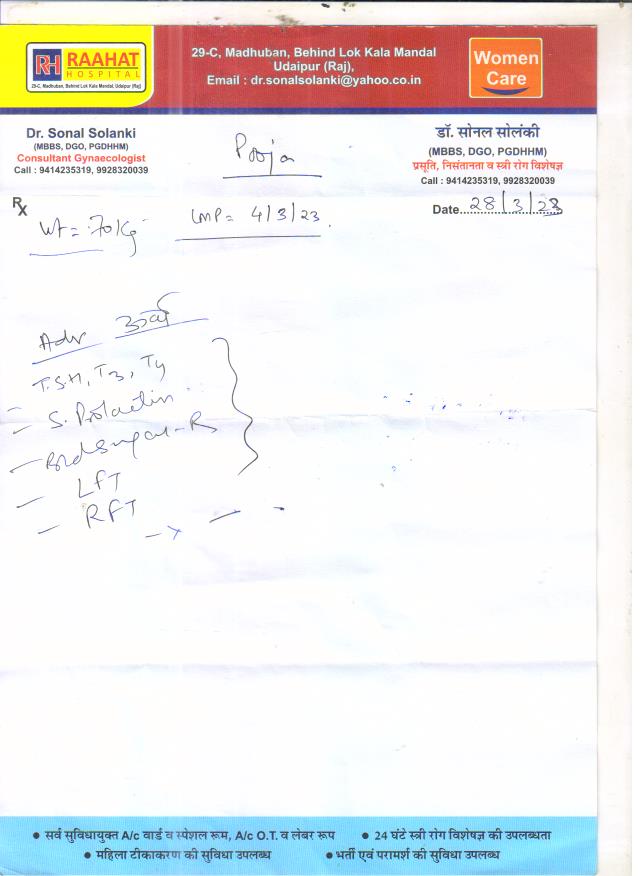 RH RAAHAT
HOSPITAL
29-C, Madhuban, Behind Lok Kala Mandal, Udaipur (Raj)
29-C, Madhuban, Behind Lok Kala Mandal
Udaipur (Raj),
Email : dr.sonalsolanki@yahoo.co.in
Women
Care
Dr. Sonal Solanki
(MBBS, DGO, PGDHHM)
Consultant Gynaecologist
Call : 9414235319, 9928320039
Pooja
डॉ. सोनल सोलंकी
(MBBS, DGO, PGDHHM)
प्रसूति, निसंतानता व स्त्री रोग विशेषज्ञ
Call : 9414235319, 9928320039
Rx
Date 28/3/23
Wt = 70 Kg
LMP = 4/3/23
Adv
T.S.H, T3, T4
S. Prolactin
Blood Sugar - R
LFT
RFT
• सर्व सुविधायुक्त A/c वार्ड व स्पेशल रूम, A/c O.T. व लेबर रूप • 24 घंटे स्त्री रोग विशेषज्ञ की उपलब्धता
• महिला टीकाकरण की सुविधा उपलब्ध • भर्ती एवं परामर्श की सुविधा उपलब्ध